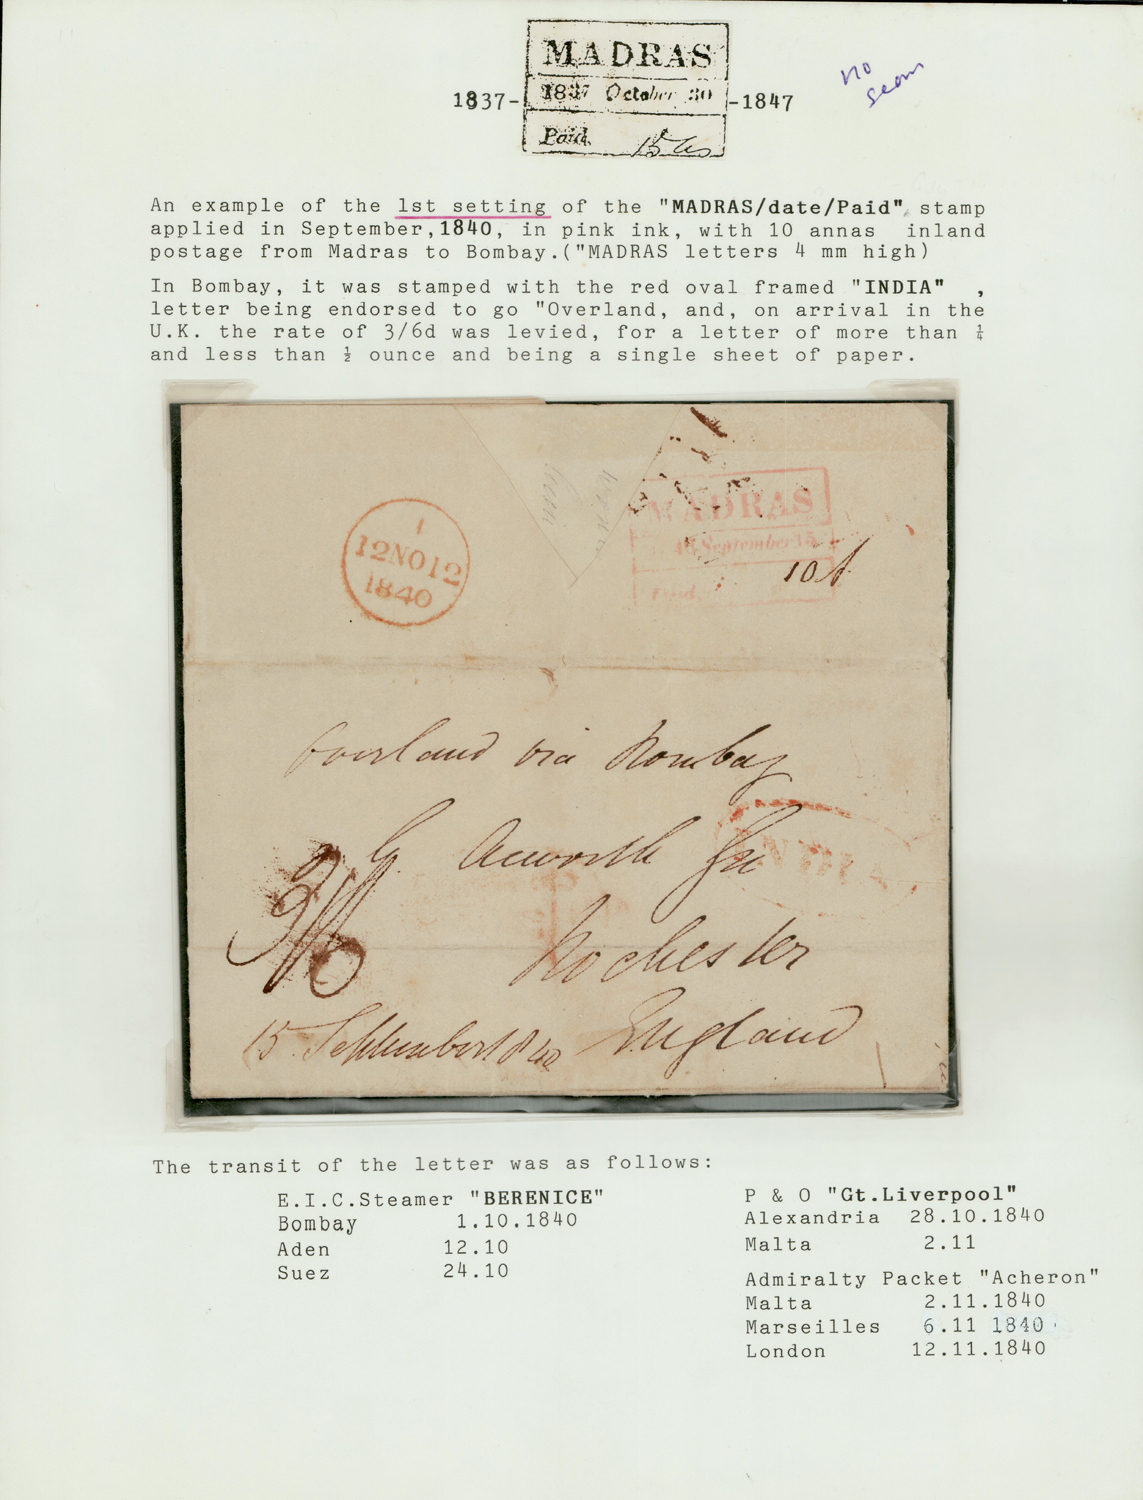 MADRAS
1837- 1837 October 30 -1847
Paid. 15 as
no
An example of the 1st setting of the "MADRAS/date/Paid" stamp
applied in September,1840, in pink ink, with 10 annas inland
postage from Madras to Bombay.("MADRAS letters 4 mm high)
In Bombay, it was stamped with the red oval framed "INDIA" ,
letter being endorsed to go "Overland, and, on arrival in the
U.K. the rate of 3/6d was levied, for a letter of more than ¼
and less than ½ ounce and being a single sheet of paper.
MADRAS
September 15
Paid.
10 A
1
12NO12
1840
Overland via Bombay
G. Acworth
INDIA
3/6
Rochester
England
15 September 1840
The transit of the letter was as follows:
E.I.C.Steamer "BERENICE"
Bombay 1.10.1840
Aden 12.10
Suez 24.10
P & O "Gt.Liverpool"
Alexandria 28.10.1840
Malta 2.11
Admiralty Packet "Acheron"
Malta 2.11.1840
Marseilles 6.11 1840
London 12.11.1840